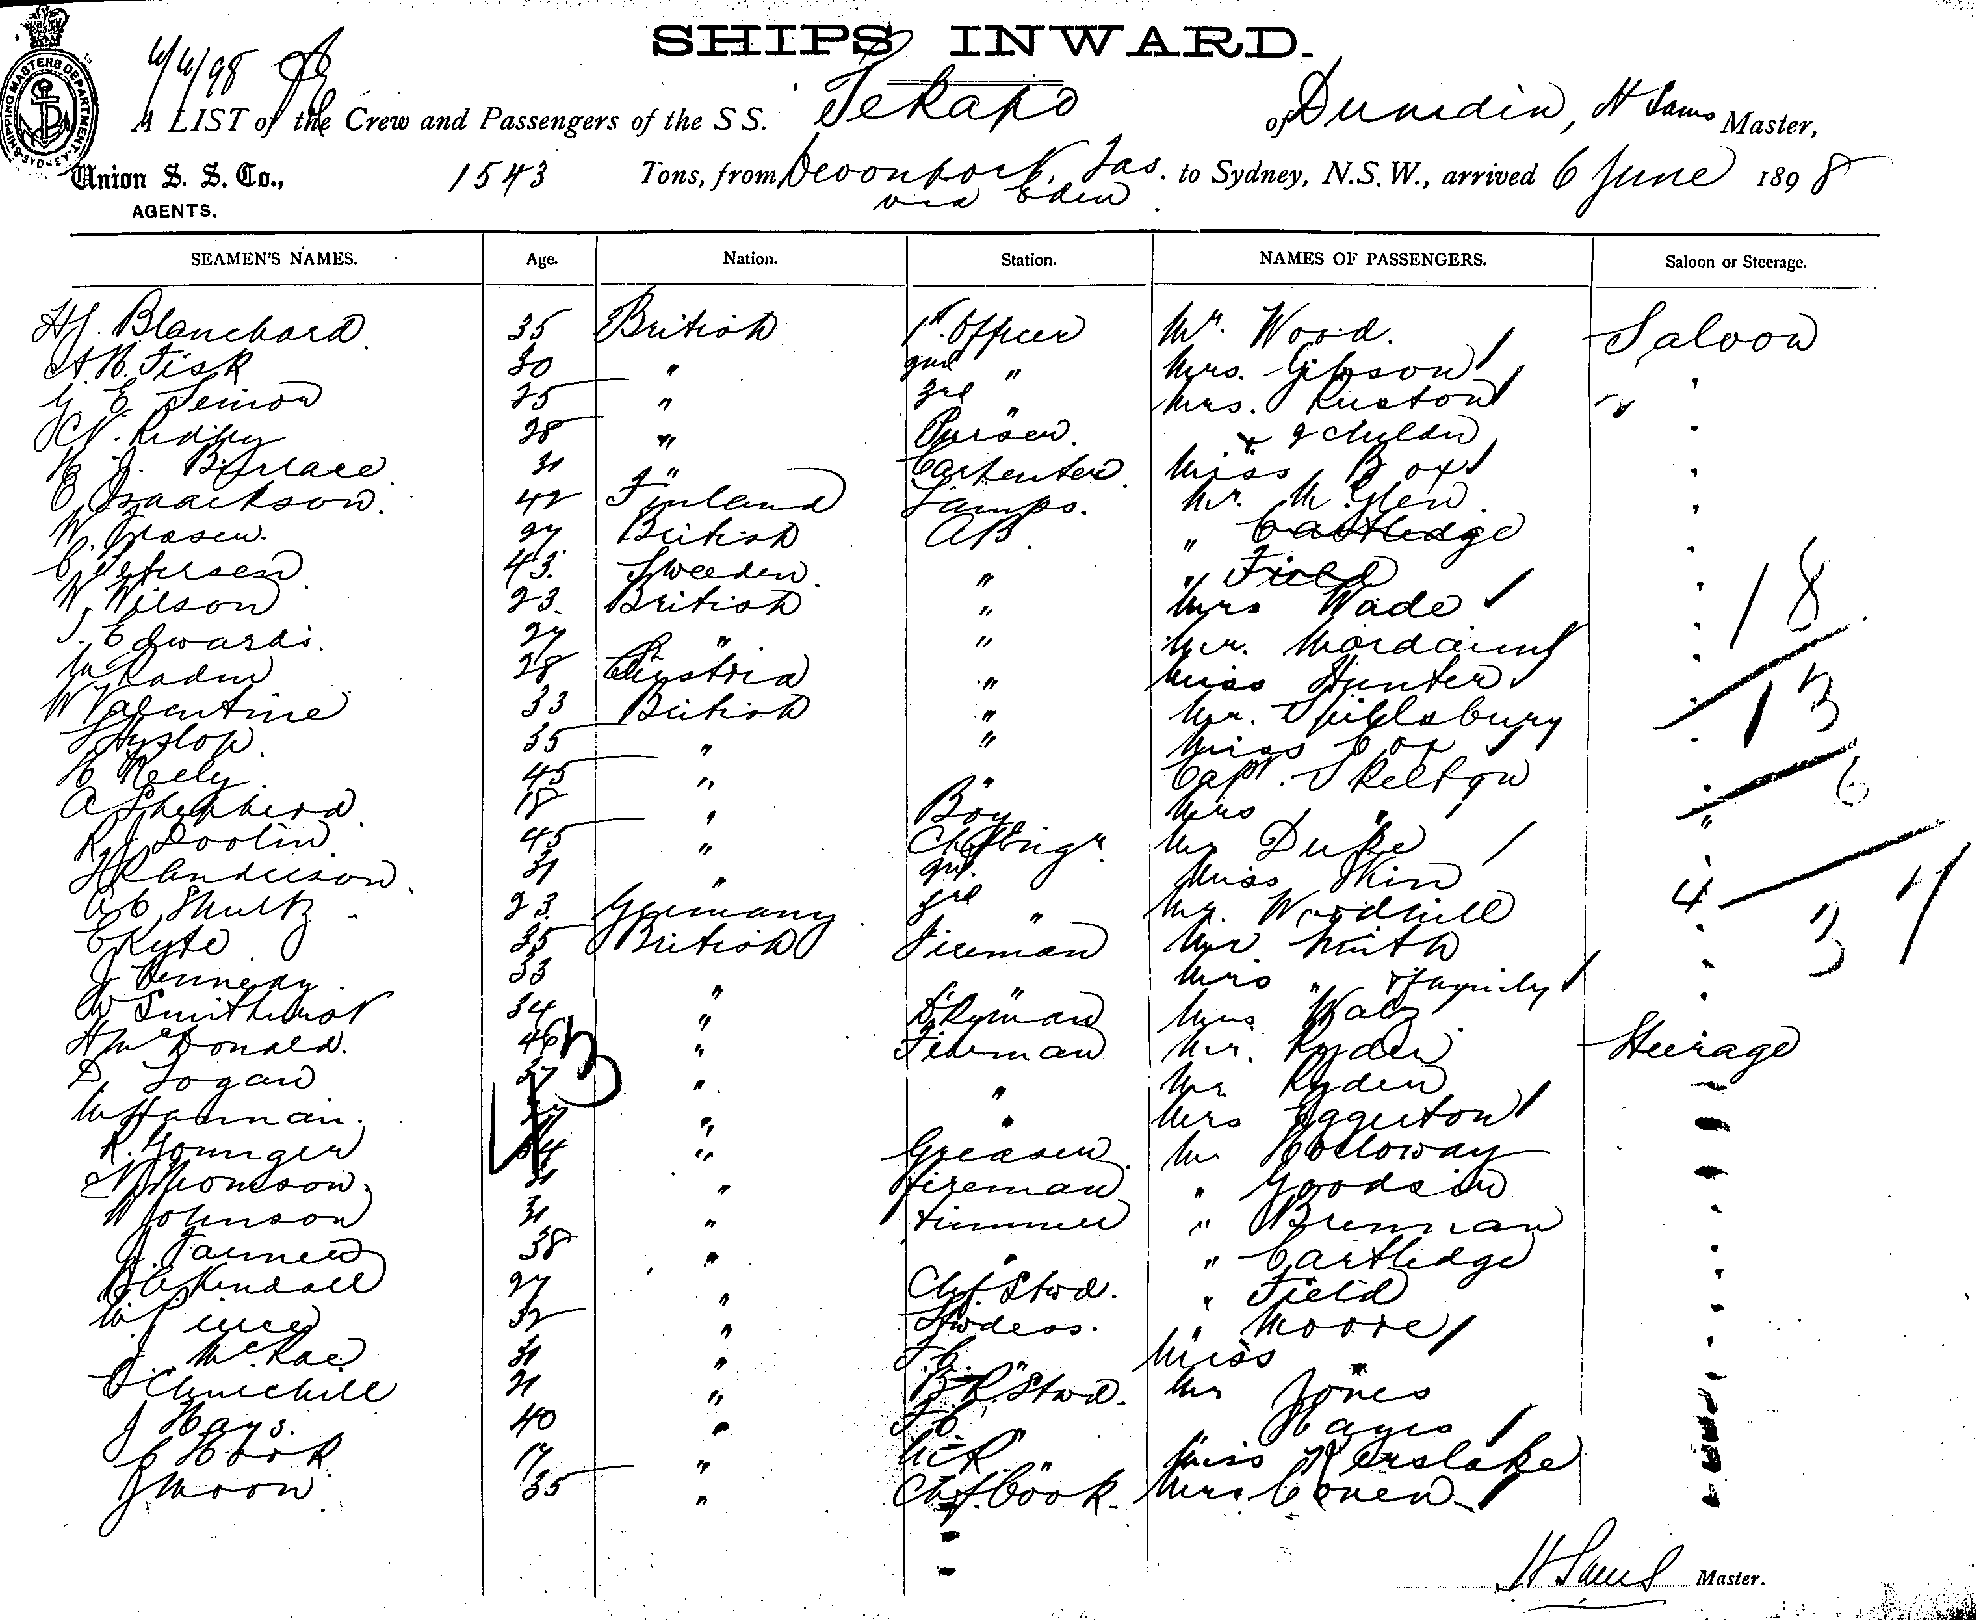 SHIPS INWARD.
6/6/98
A LIST of the Crew and Passengers of the SS. Tekapo of Dunedin, H Sams Master,
Union S. S. Co., 1543 Tons, from Devonport, Tas. to Sydney, N.S.W., arrived 6 June 1898
AGENTS. via Eden
SEAMEN'S NAMES. Age. Nation. Station. NAMES OF PASSENGERS. Saloon or Steerage.
H.J. Blanchard 35 British 1st. Officer Mr. Wood. Saloon
A. H. Fisk 30 " 2nd " Mrs. Gibson "
G E Senior 25 " 3rd " Mrs. Ruston "
28 " Purser. & 2 childn "
31 " Carpenter. Miss Box "
C Isaackson. 42 Finland Lamps. Mr. McGlen "
W. Jrasen. 27 British AB. " Cartledge "
C Petersen 43. Sweeden. " " Field "
W Wilson 23 British " Mrs Wade "
J. Edwards. 27 " " Mr. Mordaunt "
28 Austria " Miss Hunter "
W Valentine 33 British " Mr. Spillsbury "
Hyslop. 35 " " Miss Cox "
H Keely 45 " " Capt. Skelton "
A Shepherd. 18 " Boy Mrs " "
R J Doolin 45 " Chf Engr. Mr Duke "
Anderson. 31 " 2nd. Miss Skin
A C Shultz 23 Germany 3rd " Mr. Woodhill "
C Kyte 35 British Fireman Mr Smith "
J Kennedy. 33 " " Mrs " & family "
W Smithurst 34 " Dkyman Mrs Walz "
H McDonald. 46 " Fireman Mr. Ryden Steerage
D. Logan 37 " " Mr Ryden "
W Hanman. 27 " " Mrs Eggerton "
R. Younger 34 " Greaser. Mr Holloway "
N Thomson. 31 " Fireman " Goodsin "
W Johnson 31 " Trimmer " Brennan "
J. Tanner 38 " " " Cartledge "
B C Kendall 27 " Chf Stwd. " Field "
W Pierce 32 " Stwdess. " Moore "
J. McRae 31 " F.C. " Miss " "
C Churchill 21 " B R Stwd. Mr Jones "
J Hays. 40 " F C " Hayes "
C Hook 17 " " Miss Kerslake "
J Moon 35 " Chf. Cook. Mrs Coven "
18
13
6
4
3
H Sams Master.